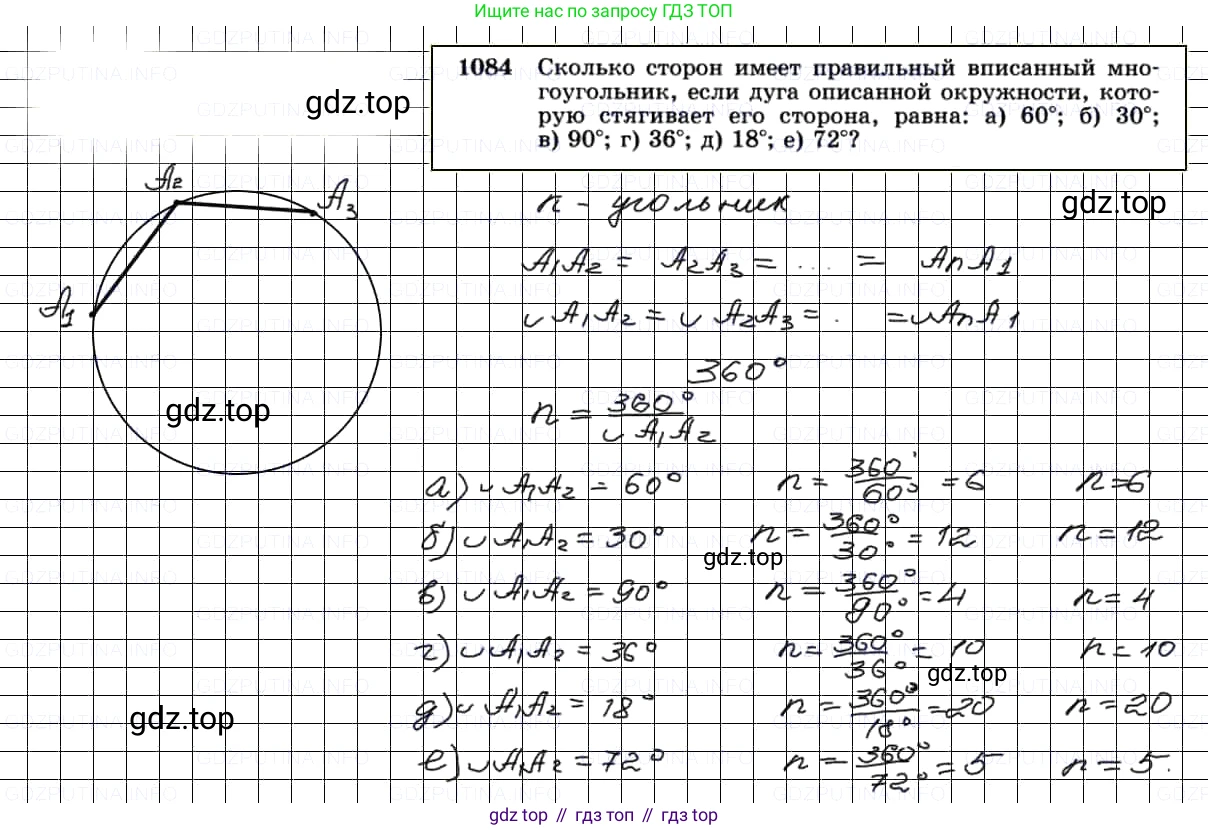 Ищите нас по запросу ГДЗ ТОП
1084 Сколько сторон имеет правильный вписанный мно-
гоугольник, если дуга описанной окружности, кото-
рую стягивает его сторона, равна: а) 60°; б) 30°;
в) 90°; г) 36°; д) 18°; е) 72°?
gdz.top
A₂
A₃
A₁
n - угольник
gdz.top
A₁A₂ = A₂A₃ = ... = AnA₁
∪A₁A₂ = ∪A₂A₃ = . = ∪AnA₁
360°
n = 360° / ∪A₁A₂
gdz.top
а) ∪A₁A₂ = 60° n = 360° / 60° = 6 n = 6
б) ∪A₁A₂ = 30° n = 360° / 30° = 12 n = 12
gdz.top
в) ∪A₁A₂ = 90° n = 360° / 90° = 4 n = 4
г) ∪A₁A₂ = 36° n = 360° / 36° = 10 n = 10
gdz.top
д) ∪A₁A₂ = 18° n = 360° / 18° = 20 n = 20
gdz.top
е) ∪A₁A₂ = 72° n = 360° / 72° = 5 n = 5.
gdz топ // гдз топ // гдз top
GDZPUTINA.INFO